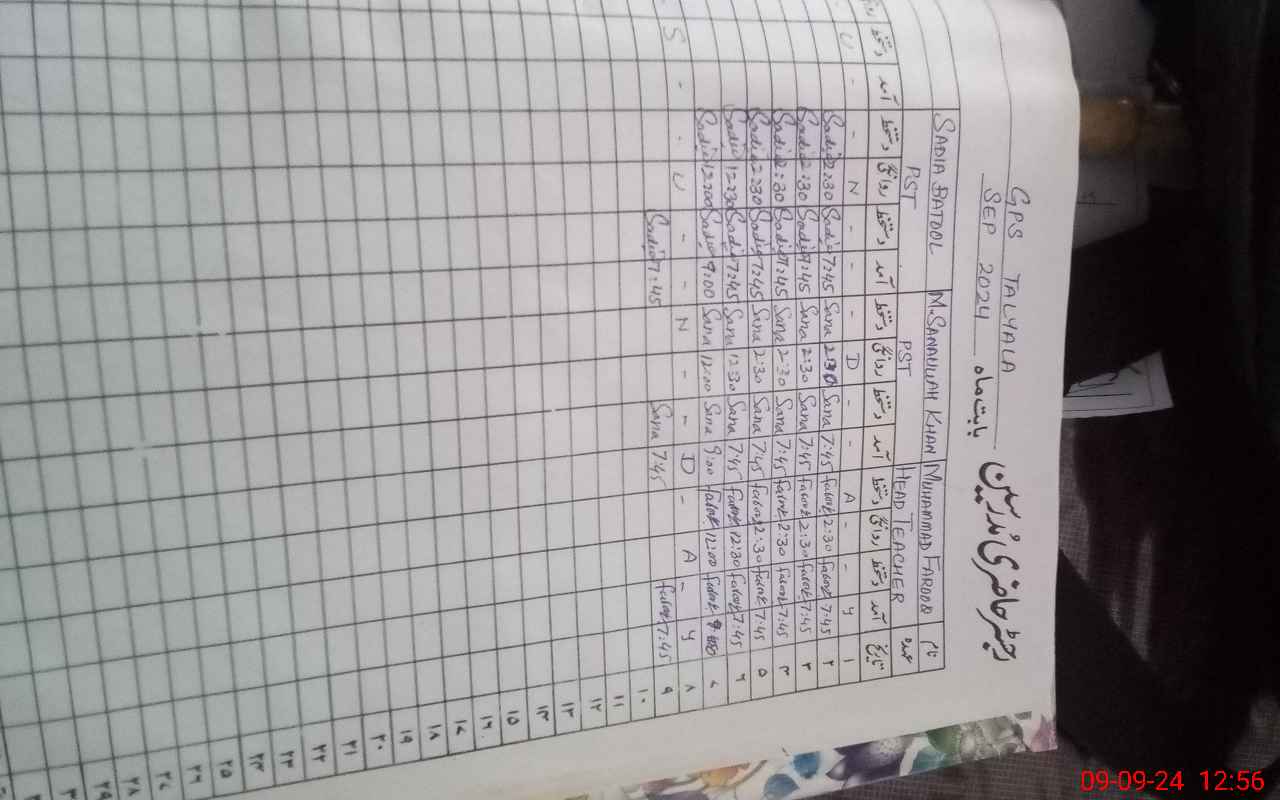 GPS TALYALA
رجسٹر حاضری مُدرسین بابت ماہ SEP 2024
SADIA BATOOL M.SANAULLAH KHAN MUHAMMAD FAROOQ نام
PST PST HEAD TEACHER عہدہ
دستخط آمد دستخط روانگی دستخط آمد دستخط روانگی دستخط آمد دستخط روانگی دستخط آمد تاریخ
U - - N - - - D - - A - - Y ۱
Sadia 2:30 Sadia 7:45 Sana 2:30 Sana 7:45 farook 2:30 farook 7:45 ۲
Sadia 2:30 Sadia 7:45 Sana 2:30 Sana 7:45 farook 2:30 farook 7:45 ۳
Sadia 2:30 Sadia 7:45 Sana 2:30 Sana 7:45 farook 2:30 farook 7:45 ۴
Sadia 2:30 Sadia 7:45 Sana 2:30 Sana 7:45 farook 2:30 farook 7:45 ۵
Sadia 12:30 Sadia 7:45 Sana 12:30 Sana 7:45 farook 12:30 farook 7:45 ۶
Sadia 12:00 Sadia 9:00 Sana 12:00 Sana 9:00 farook 12:00 farook 9:00 ۷
S - - U - - N - - D - A - Y ۸
Sadia 7:45 Sana 7:45 farook 7:45 ۹
۱۰
۱۱
۱۲
۱۳
۱۴
۱۵
۱۶
۱۷
۱۸
۱۹
۲۰
۲۱
۲۲
۲۳
۲۴
۲۵
۲۶
۲۷
۲۸
۲۹
09-09-24 12:56